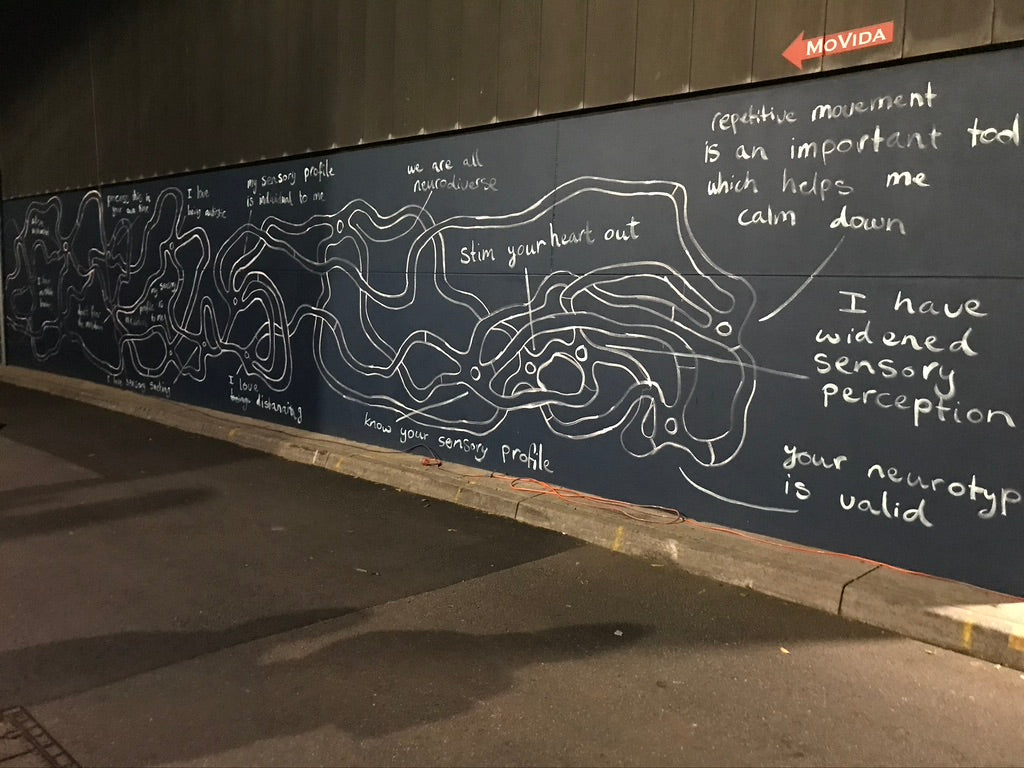 MOVIDA
repetitive movement
is an important tool
which helps me
calm down
we are all
neurodiverse
my sensory profile
is individual to me
I love
being autistic
process this in
your own time
Stim your heart out
I have
widened
sensory
perception
your neurotyp
is valid
know your sensory profile
I love
being distancing